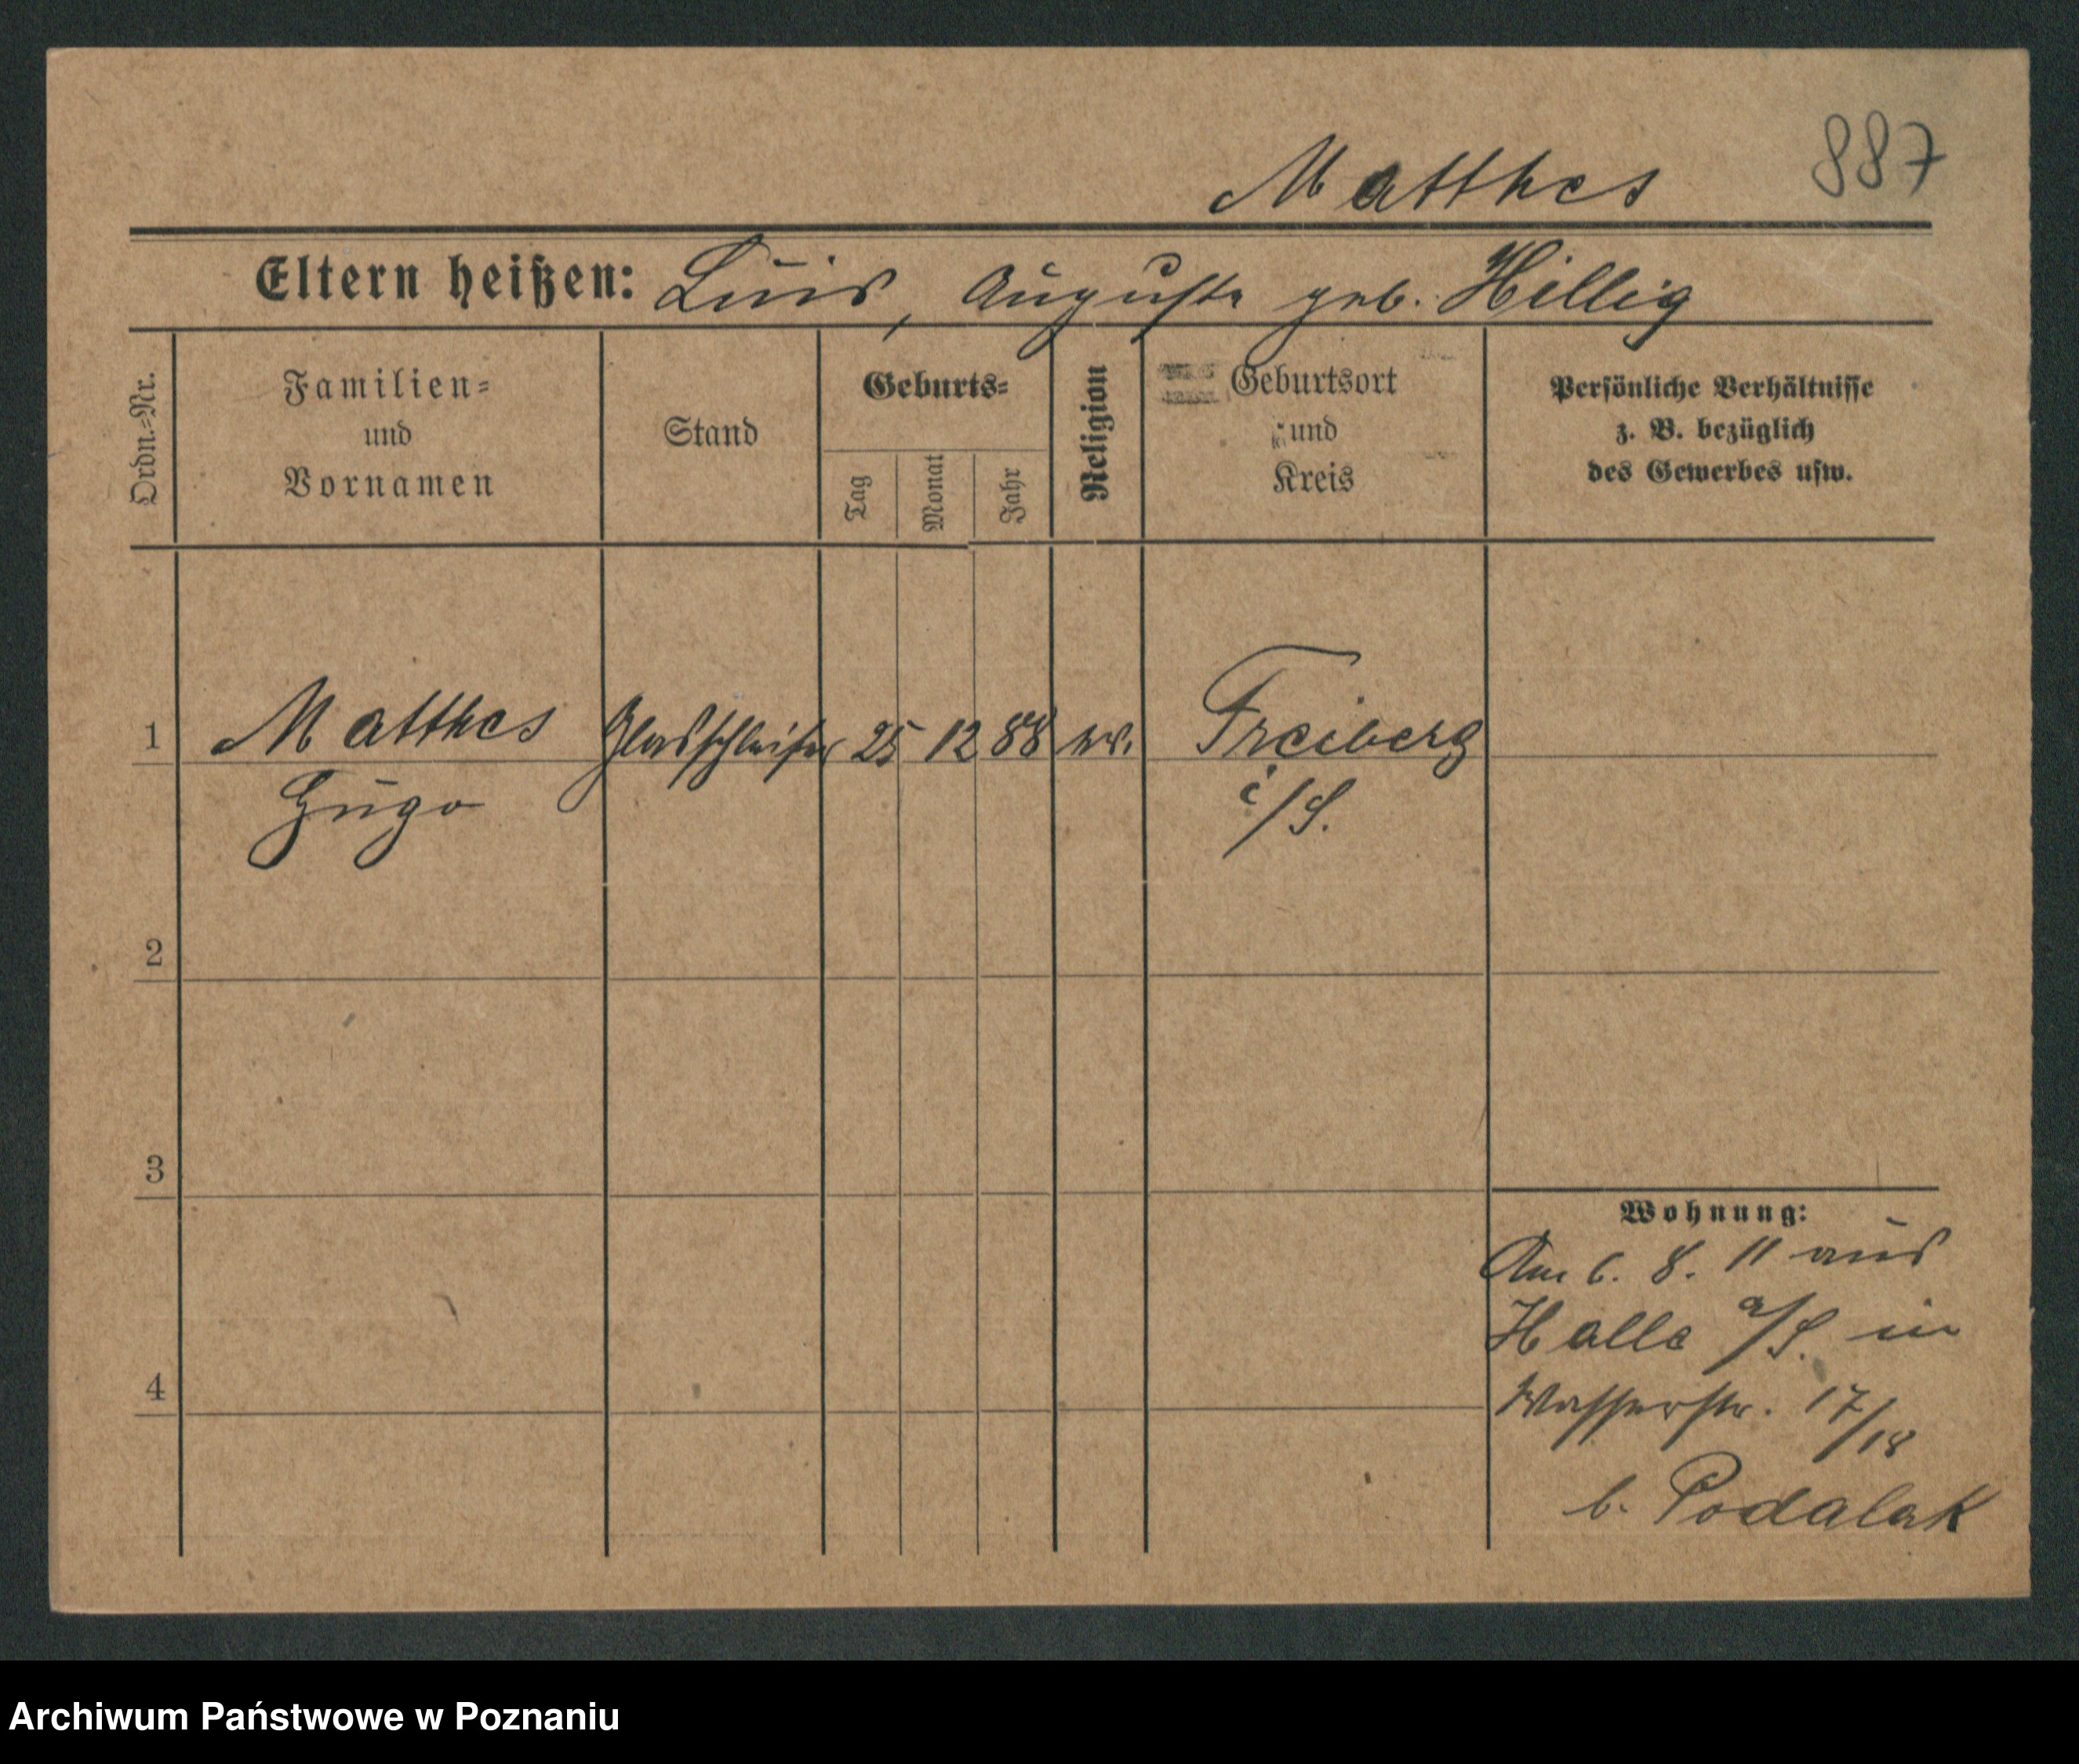 887
Matthes
Eltern heißen: Luis, Auguste geb. Hillig
Ordn.-Nr.
Familien-
und
Vornamen
Stand
Geburts-
Tag
Monat
Jahr
Religion
Geburtsort
und
Kreis
Persönliche Verhältnisse
z. B. bezüglich
des Gewerbes usw.
1 Matthes Glasschleifer 25 12 88 ev. Freiberg
Hugo i/S.
2
3
4
Wohnung:
Am 6. 8. 11 aus
Halle a/S. in
Wasserstr. 17/18
b. Podalak
Archiwum Państwowe w Poznaniu